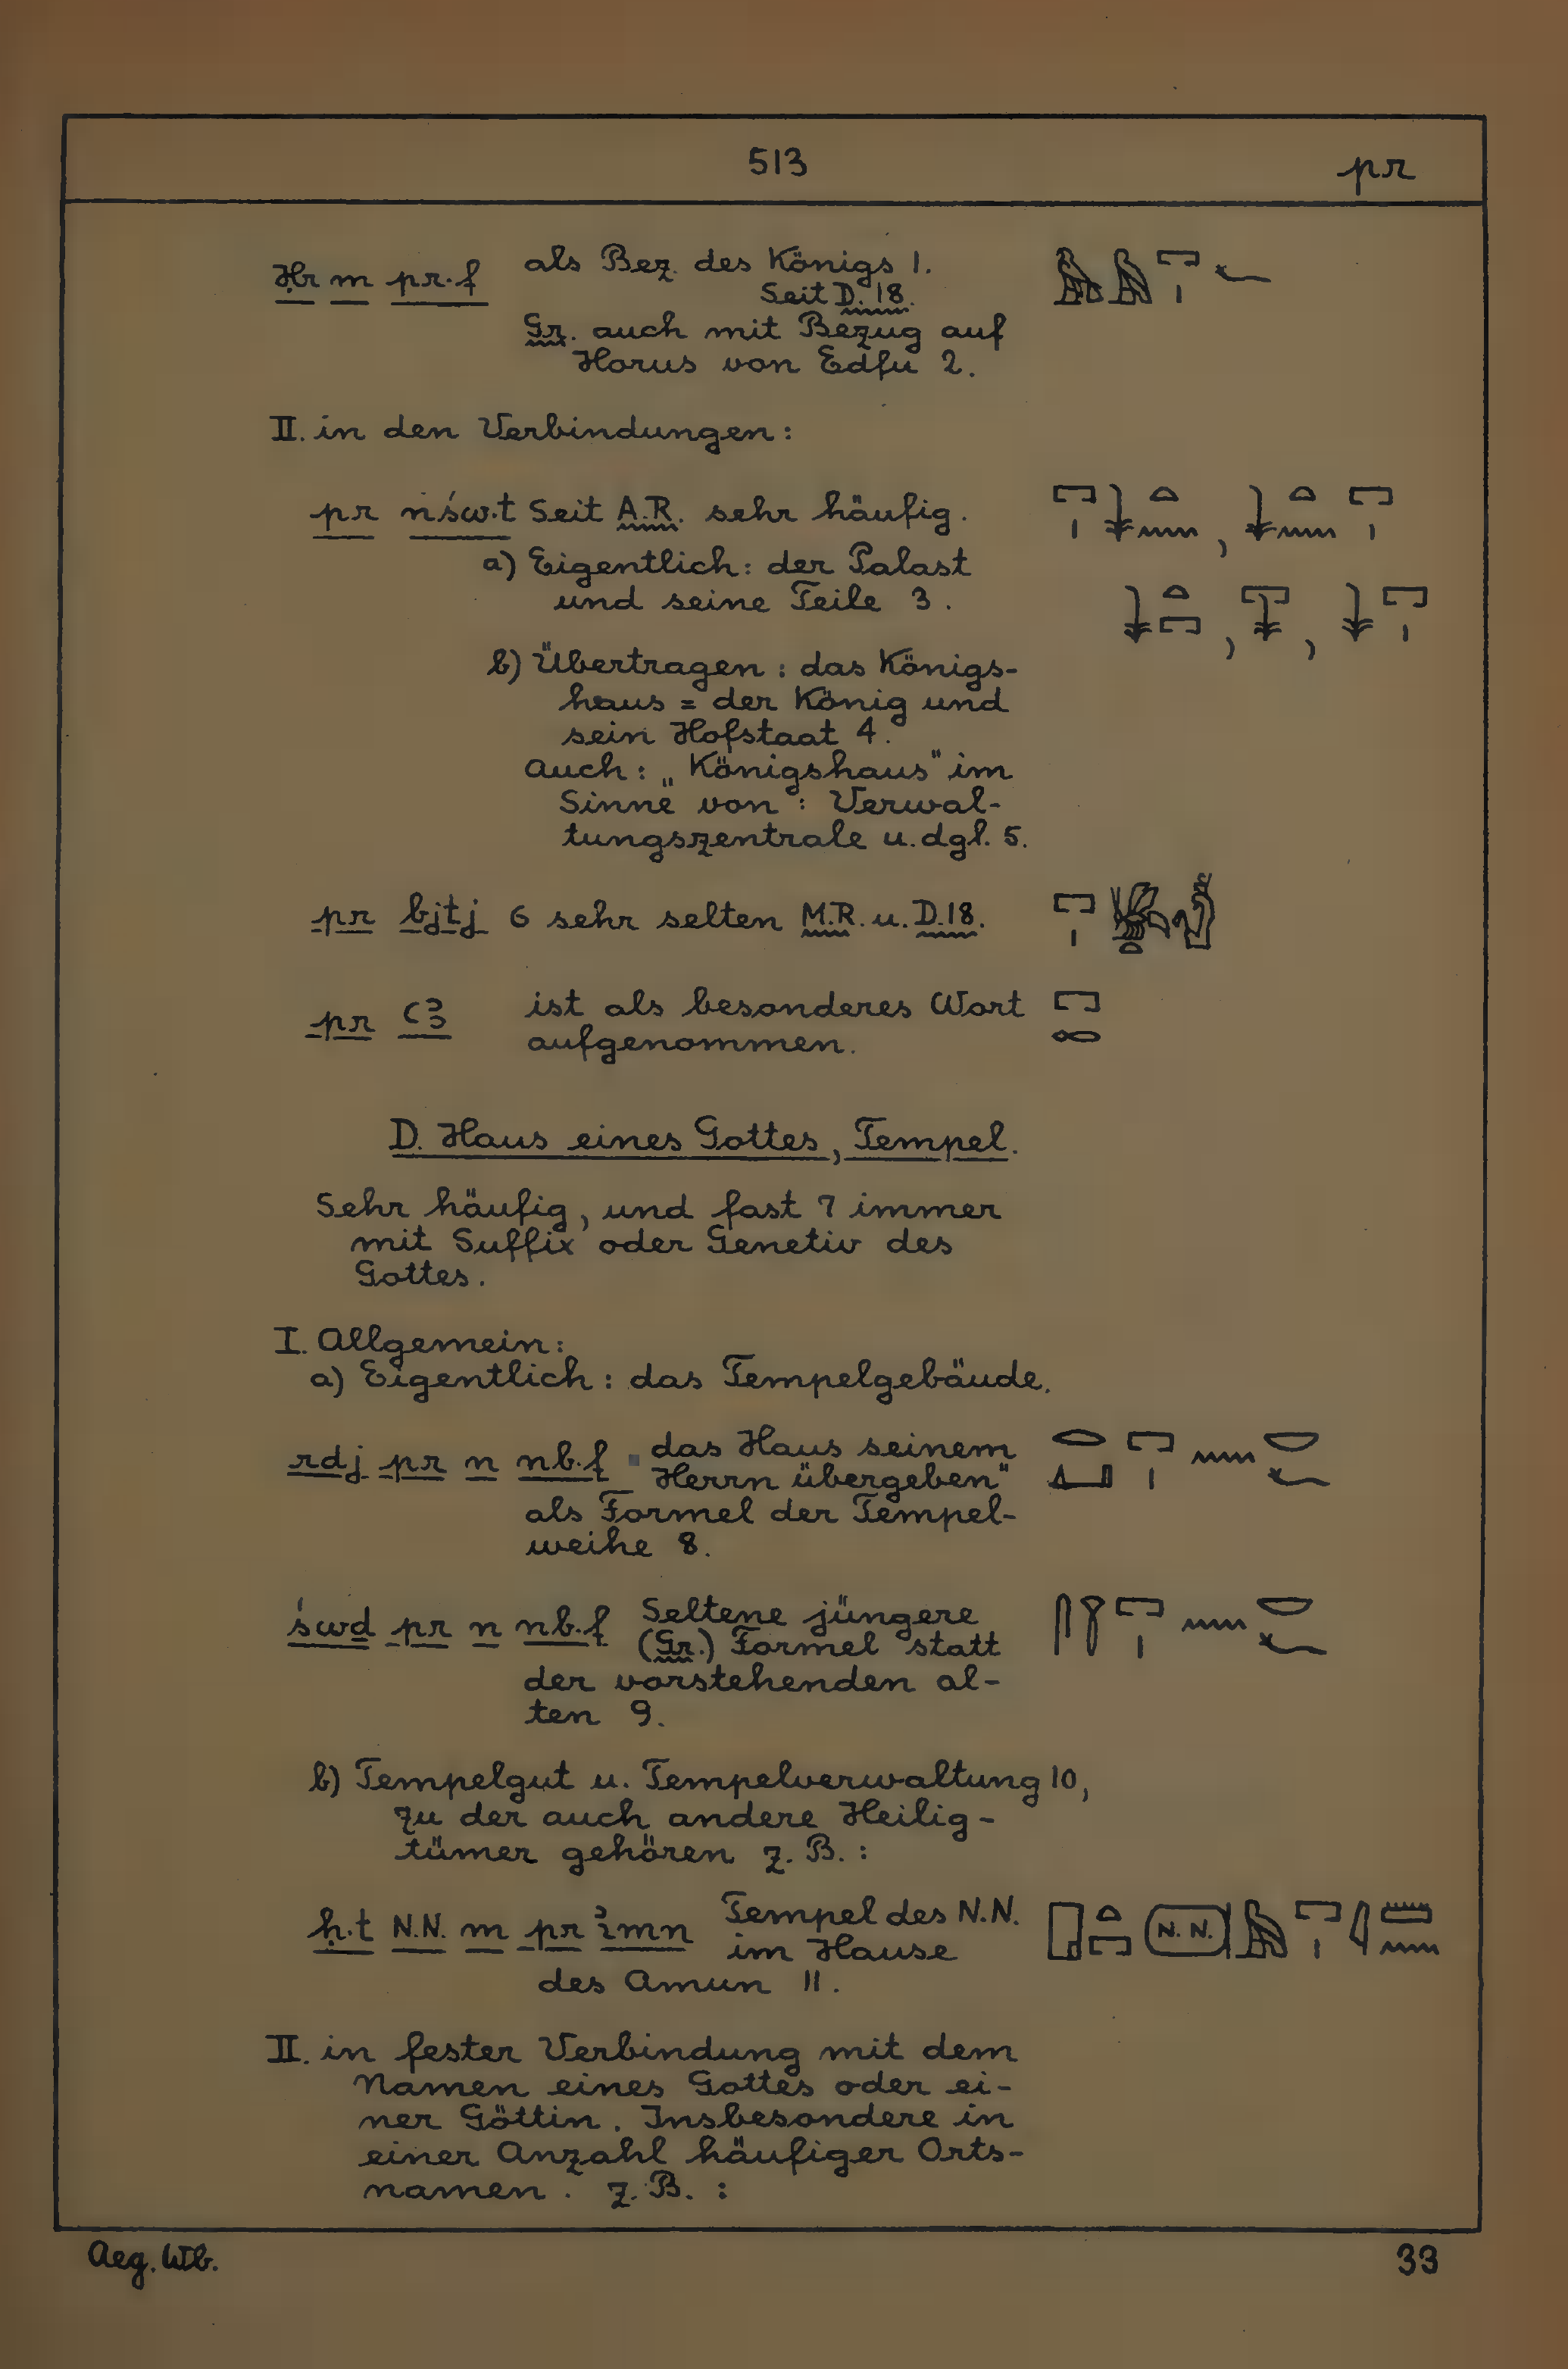 513
pr
Ḥr m pr.f als Bez. des Königs 1. 𓅃𓅓𓉐𓏤𓆑
Seit D. 18.
Gr. auch mit Bezug auf
Horus von Edfu 2.
II. in den Verbindungen:
pr nśw.t Seit A.R. sehr häufig. 𓉐𓏤𓇓𓏏𓈖, 𓇓𓏏𓈖𓉐𓏤
a) Eigentlich: der Palast
und seine Teile 3. 𓇓𓏏𓉐, 𓉐𓇓, 𓇓𓉐𓏤
b) Übertragen: das Königs-
haus = der König und
sein Hofstaat 4.
Auch: „Königshaus" im
Sinne von: Verwal-
tungszentrale u. dgl. 5.
pr bjtj 6 sehr selten M.R. u. D.18. 𓉐𓏤𓆤𓏏
pr ꜥꜣ ist als besonderes Wort 𓉐𓉻
aufgenommen.
D. Haus eines Gottes, Tempel.
Sehr häufig, und fast 7 immer
mit Suffix oder Genetiv des
Gottes.
I. Allgemein:
a) Eigentlich: das Tempelgebäude.
rdj pr n nb.f „das Haus seinem 𓂋𓉐𓏤𓈖𓎟𓆑
Herrn übergeben"
als Formel der Tempel-
weihe 8.
świd pr n nb.f Seltene jüngere 𓋴𓉐𓏤𓈖𓎟𓆑
(Gr.) Formel statt
der vorstehenden al-
ten 9.
b) Tempelgut u. Tempelverwaltung 10,
zu der auch andere Heilig-
tümer gehören z. B.:
ḥ.t N.N. m pr ꞽmn Tempel des N.N. 𓉗𓏏𓉐 N. N. 𓅓𓉐𓏤𓇋𓏠𓈖
im Hause
des Amun 11.
II. in fester Verbindung mit dem
Namen eines Gottes oder ei-
ner Göttin. Insbesondere in
einer Anzahl häufiger Orts-
namen. z. B. :
Aeg. Wb.
33